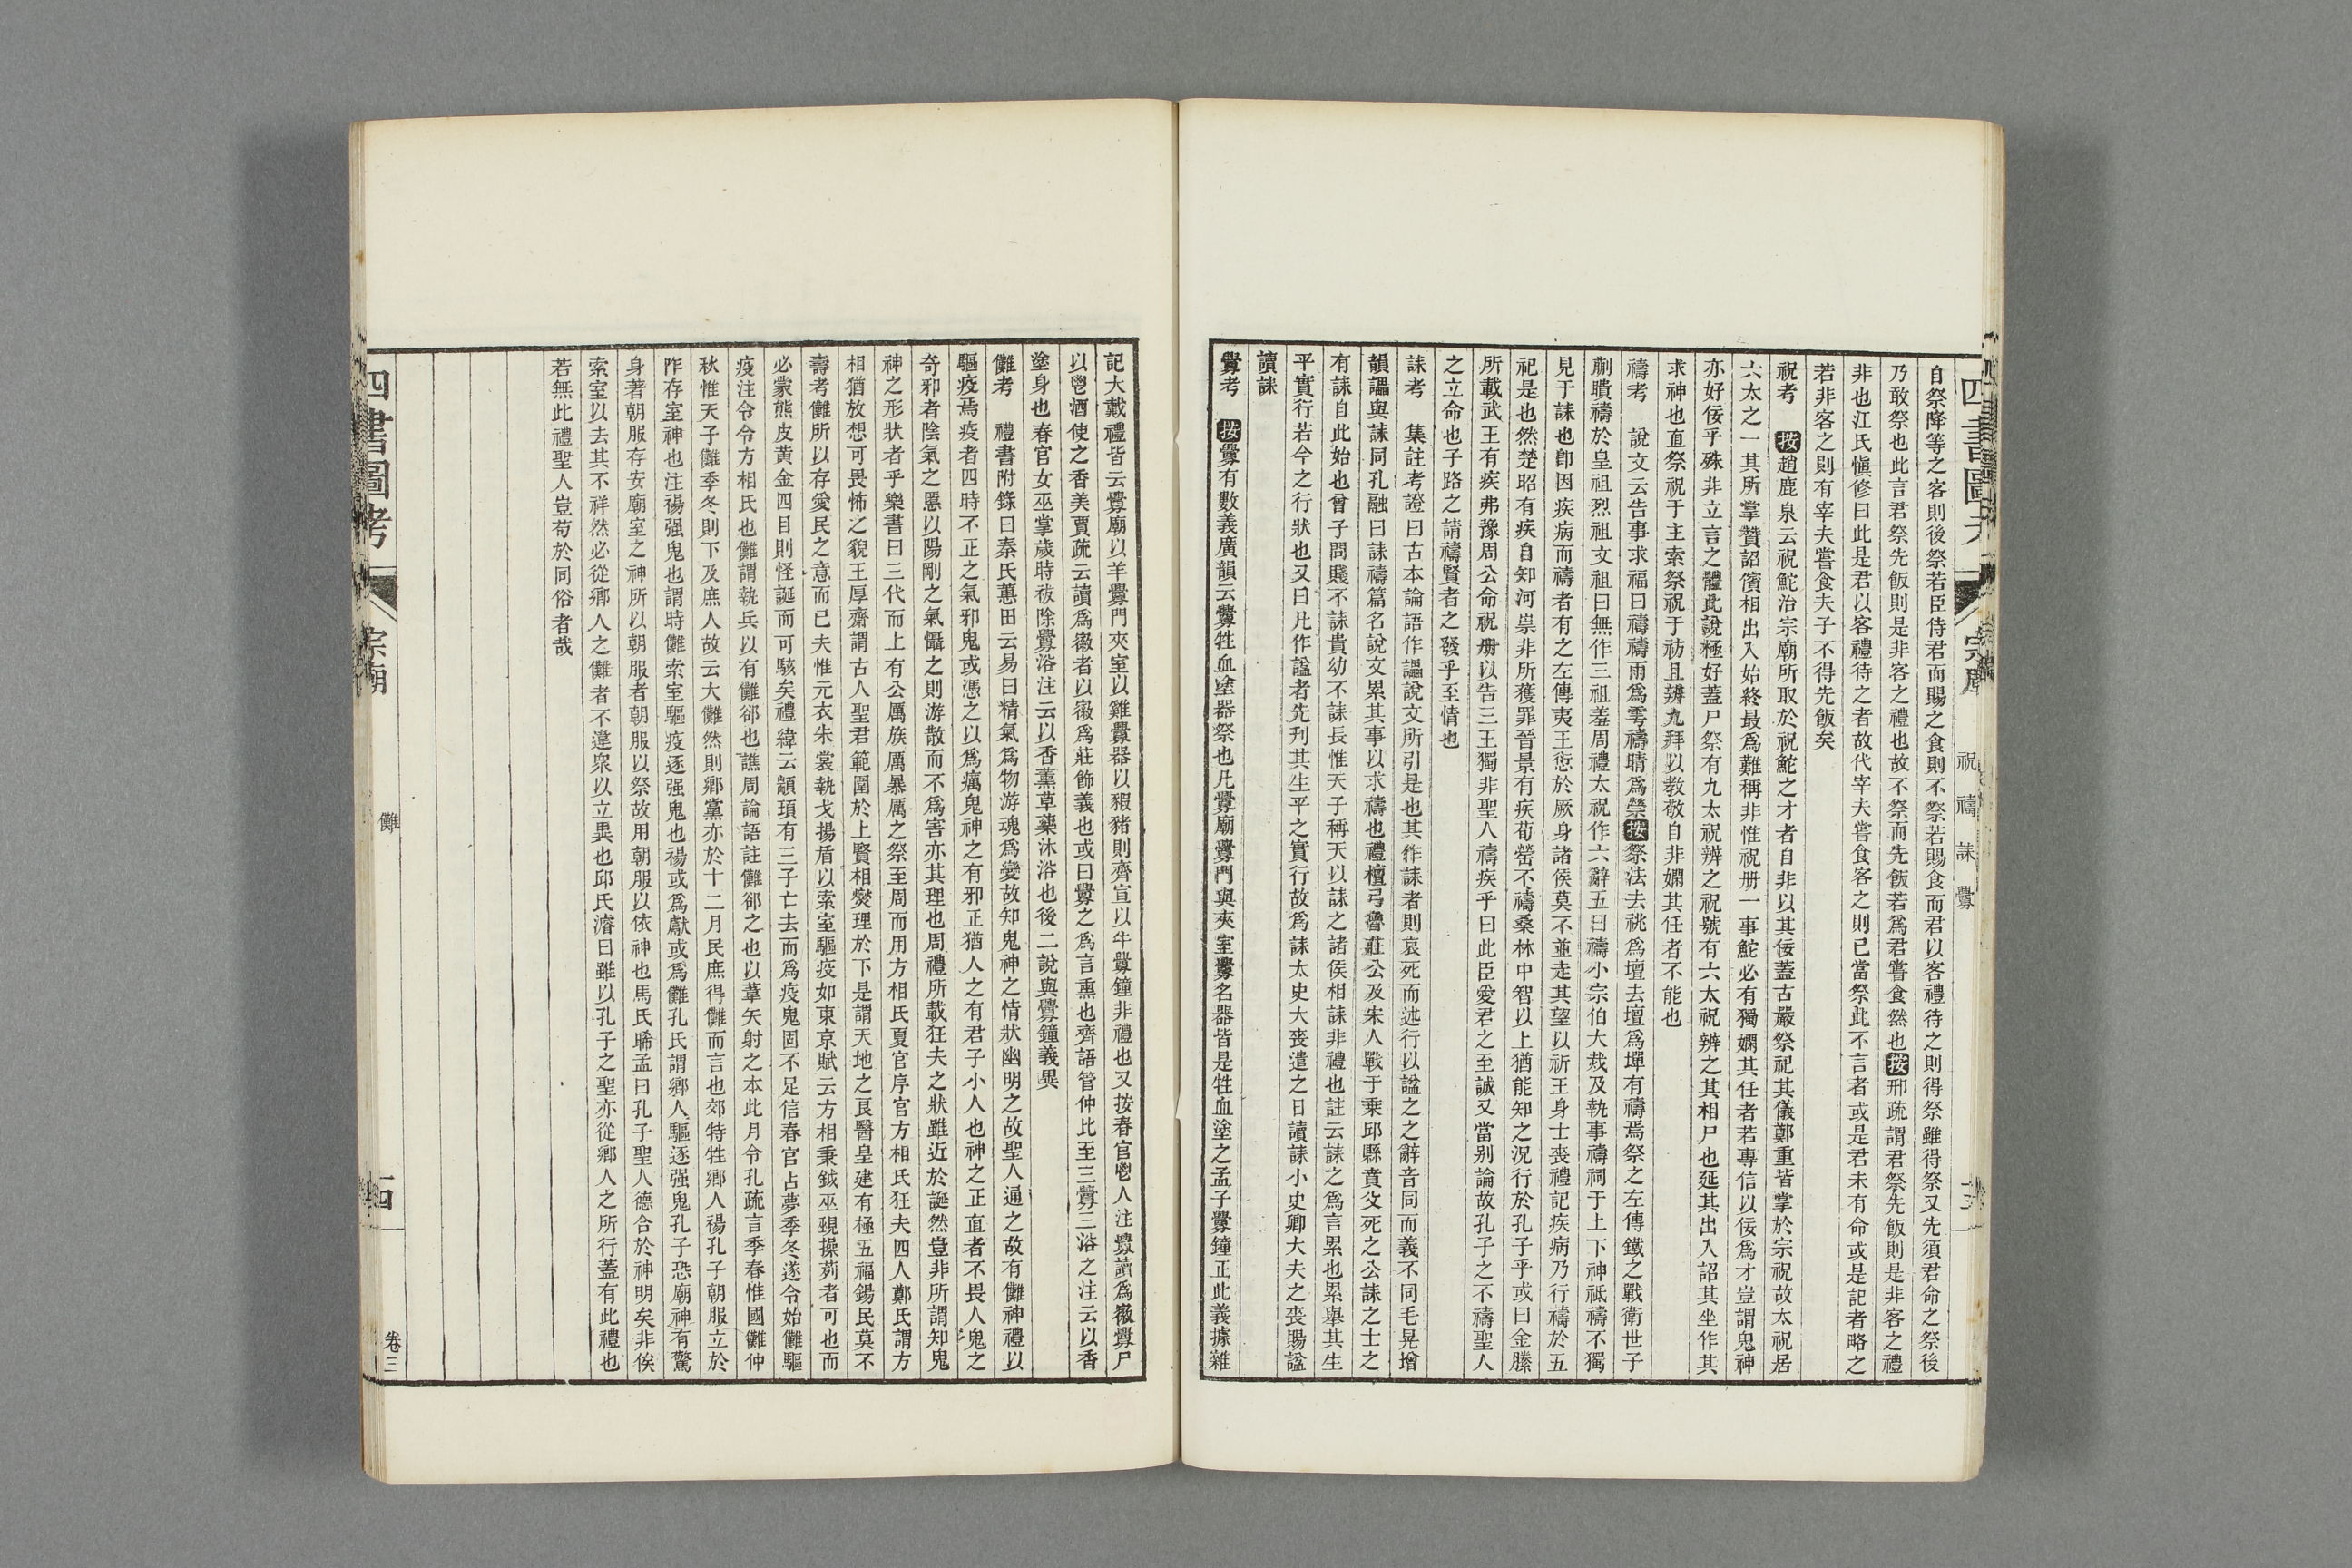 四書圖考
宗廟
祝 禱 誄 釁
自祭降等之客則後祭若臣侍君而賜之食則不祭若賜食而君以客禮待之則得祭雖得祭又先須君命之祭後
乃敢祭也此言君祭先飯則是非客之禮也故不祭而先飯若爲君嘗食然也按邢疏謂君祭先飯則是非客之禮
非也江氏愼修曰此是君以客禮待之者故代宰夫嘗食客之則已當祭此不言者或是君未有命或是記者略之
若非客之則有宰夫嘗食夫子不得先飯矣
祝考 按趙鹿泉云祝鮀治宗廟所取於祝鮀之才者自非以其佞蓋古嚴祭祀其儀鄭重皆掌於宗祝故太祝居
六太之一其所掌贊詔儐相出入始終最爲難稱非惟祝册一事鮀必有獨嫻其任者若專信以佞爲才豈謂鬼神
亦好佞乎殊非立言之體此說極好蓋尸祭有九太祝辨之祝號有六太祝辨之其相尸也延其出入詔其坐作其
求神也直祭祝于主索祭祝于祊且辨九拜以教敬自非嫻其任者不能也
禱考 說文云告事求福曰禱禱雨爲雩禱晴爲禜按祭法去祧爲壇去壇爲墠有禱焉祭之左傳鐵之戰衛世子
蒯聵禱於皇祖烈祖文祖曰無作三祖羞周禮太祝作六辭五曰禱小宗伯大烖及執事禱祠于上下神祗禱不獨
見于誄也卽因疾病而禱者有之左傳夷王愆於厥身諸侯莫不並走其望以祈王身士喪禮記疾病乃行禱於五
祀是也然楚昭有疾自知河祟非所獲罪晉景有疾荀罃不禱桑林中智以上猶能知之況行於孔子乎或曰金縢
所載武王有疾弗豫周公命祝册以告三王獨非聖人禱疾乎曰此臣愛君之至誠又當别論故孔子之不禱聖人
之立命也子路之請禱賢者之發乎至情也
誄考 集註考證曰古本論語作讄說文所引是也其作誄者則哀死而述行以諡之之辭音同而義不同毛晃增
韻讄與誄同孔融曰誄禱篇名說文累其事以求禱也禮檀弓魯莊公及宋人戰于乘邱縣賁父死之公誄之士之
有誄自此始也曾子問賤不誄貴幼不誄長惟天子稱天以誄之諸侯相誄非禮也註云誄之爲言累也累舉其生
平實行若今之行狀也又曰凡作諡者先列其生平之實行故爲誄太史大喪遣之日讀誄小史卿大夫之喪賜諡
讀誄
釁考 按釁有數義廣韻云釁牲血塗器祭也凡釁廟釁門與夾室釁名器皆是牲血塗之孟子釁鐘正此義據雜
記大戴禮皆云釁廟以羊釁門夾室以雞釁器以豭豬則齊宣以牛釁鐘非禮也又按春官鬯人注釁讀爲徽釁尸
以鬯酒使之香美賈疏云讀爲徽者以徽爲莊飾義也或曰釁之爲言熏也齊語管仲比至三釁三浴之注云以香
塗身也春官女巫掌歲時祓除釁浴注云以香薰草藥沐浴也後二說與釁鐘義異
儺考 禮書附錄曰秦氏蕙田云易曰精氣爲物游魂爲變故知鬼神之情狀幽明之故聖人通之故有儺神禮以
驅疫焉疫者四時不正之氣邪鬼或憑之以爲癘鬼神之有邪正猶人之有君子小人也神之正直者不畏人鬼之
奇邪者陰氣之慝以陽剛之氣懾之則游散而不爲害亦其理也周禮所載狂夫之狀雖近於誕然豈非所謂知鬼
神之形狀者乎樂書曰三代而上有公厲族厲暴厲之祭至周而用方相氏夏官序官方相氏狂夫四人鄭氏謂方
相猶放想可畏怖之貌王厚齋謂古人聖君範圍於上賢相燮理於下是謂天地之良醫皇建有極五福錫民莫不
壽考儺所以存愛民之意而已夫惟元衣朱裳執戈揚盾以索室驅疫如東京賦云方相秉鉞巫覡操茢者可也而
必蒙熊皮黄金四目則怪誕而可駭矣禮緯云顓頊有三子亡去而爲疫鬼固不足信春官占夢季冬遂令始儺驅
疫注令令方相氏也儺謂執兵以有儺郤也譙周論語註儺郤之也以葦矢射之本此月令孔疏言季春惟國儺仲
秋惟天子儺季冬則下及庶人故云大儺然則鄉黨亦於十二月民庶得儺而言也郊特牲鄉人禓孔子朝服立於
阼存室神也注禓强鬼也謂時儺索室驅疫逐强鬼也禓或爲獻或爲儺孔氏謂鄉人驅逐强鬼孔子恐廟神有驚
身著朝服存安廟室之神所以朝服者朝服以祭故用朝服以依神也馬氏晞孟曰孔子聖人德合於神明矣非俟
索室以去其不祥然必從鄉人之儺者不違衆以立異也邱氏濬曰雖以孔子之聖亦從鄉人之所行蓋有此禮也
若無此禮聖人豈苟於同俗者哉
四書圖考
宗廟
儺
卷三